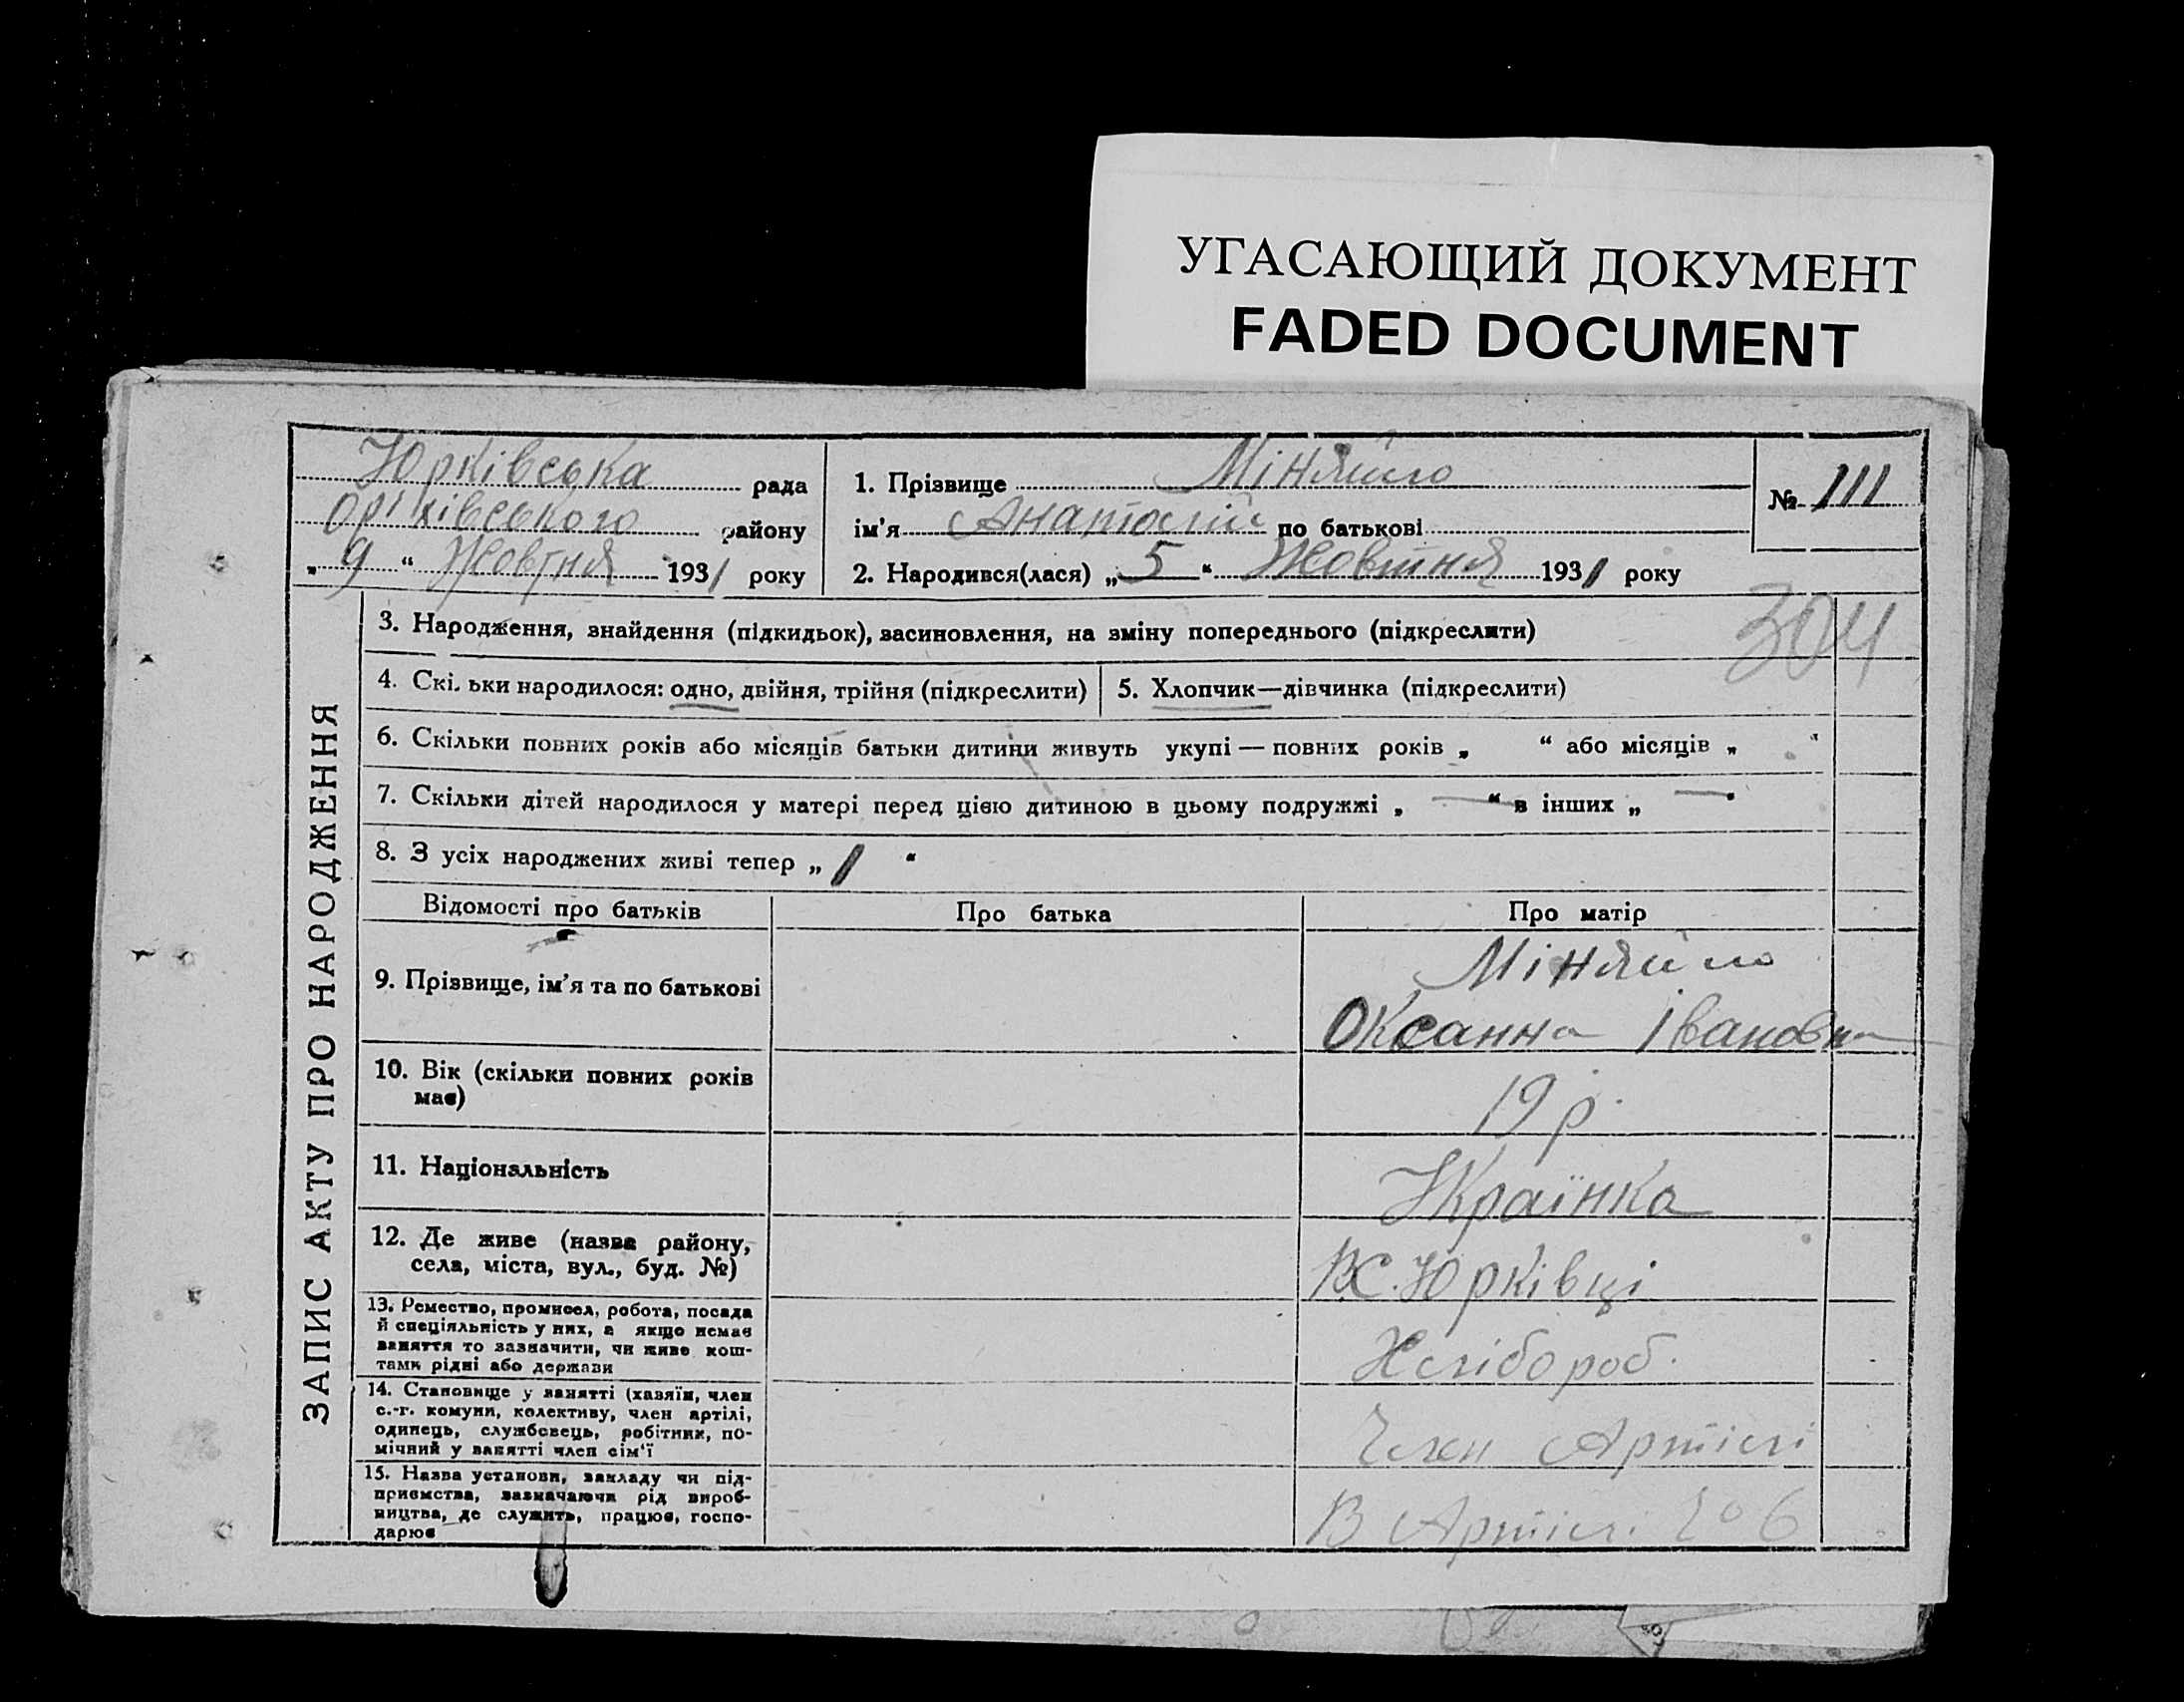 УГАСАЮЩИЙ ДОКУМЕНТ
FADED DOCUMENT
Юрківська рада
Оріхівського району
„ 9 “ Жовтня 1931 року
1. Прізвище Міняйло
ім’я Анатолій по батькові
2. Народився(лася) „ 5 “ Жовтня 1931 року
№ 111
304
ЗАПИС АКТУ ПРО НАРОДЖЕННЯ
3. Народження, знайдення (підкидьок), засиновлення, на зміну попереднього (підкреслити)
4. Скільки народилося: одно, двійня, трійня (підкреслити)
5. Хлопчик—дівчинка (підкреслити)
6. Скільки повних років або місяців батьки дитини живуть укупі — повних років „ “ або місяців „ “
7. Скільки дітей народилося у матері перед цією дитиною в цьому подружжі „ — “ в інших „ — “
8. З усіх народжених живі тепер „ 1 “
Відомості про батьків
Про батька
Про матір
9. Прізвище, ім’я та по батькові
Міняйло
Оксанна Івановна
10. Вік (скільки повних років
має)
19 р.
11. Національність
Українка
12. Де живе (назва району,
села, міста, вул., буд. №)
В С. Юрківці
13. Ремество, промисел, робота, посада
й спеціяльність у них, а якщо немає
заняття то зазначити, чи живе кош-
тами рідні або держави
Хлібороб.
14. Становище у занятті (хазяїн, член
с.-г. комуни, колективу, член артілі,
одинець, службовець, робітник, по-
мічний у занятті член сім‘ї
Член Артілі
15. Назва установи, закладу чи під-
приємства, зазначаючи рід вироб-
ництва, де служить, працює, госпо-
дарює
В Артілі 6